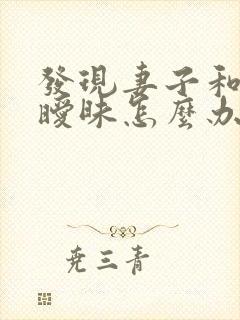 發現妻子和
曖昧怎麼办
尭三青